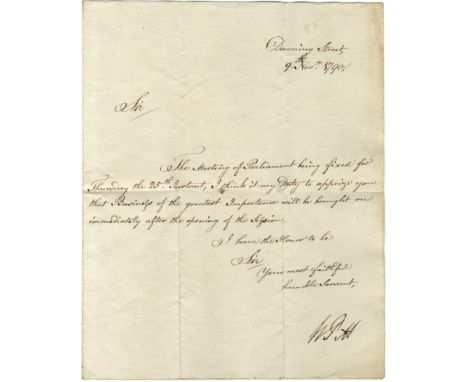 Downing Street,
9th Novr. 1790,
Sir
The Meeting of Parliament being fixed for
Thursday the 25th. Instant, I think it my Duty to apprize you
that Business of the greatest Importance will be brought on
immediately after the opening of the Session.
I have the Honor to be
Sir
Your most faithful
humble Servant,
W Pitt